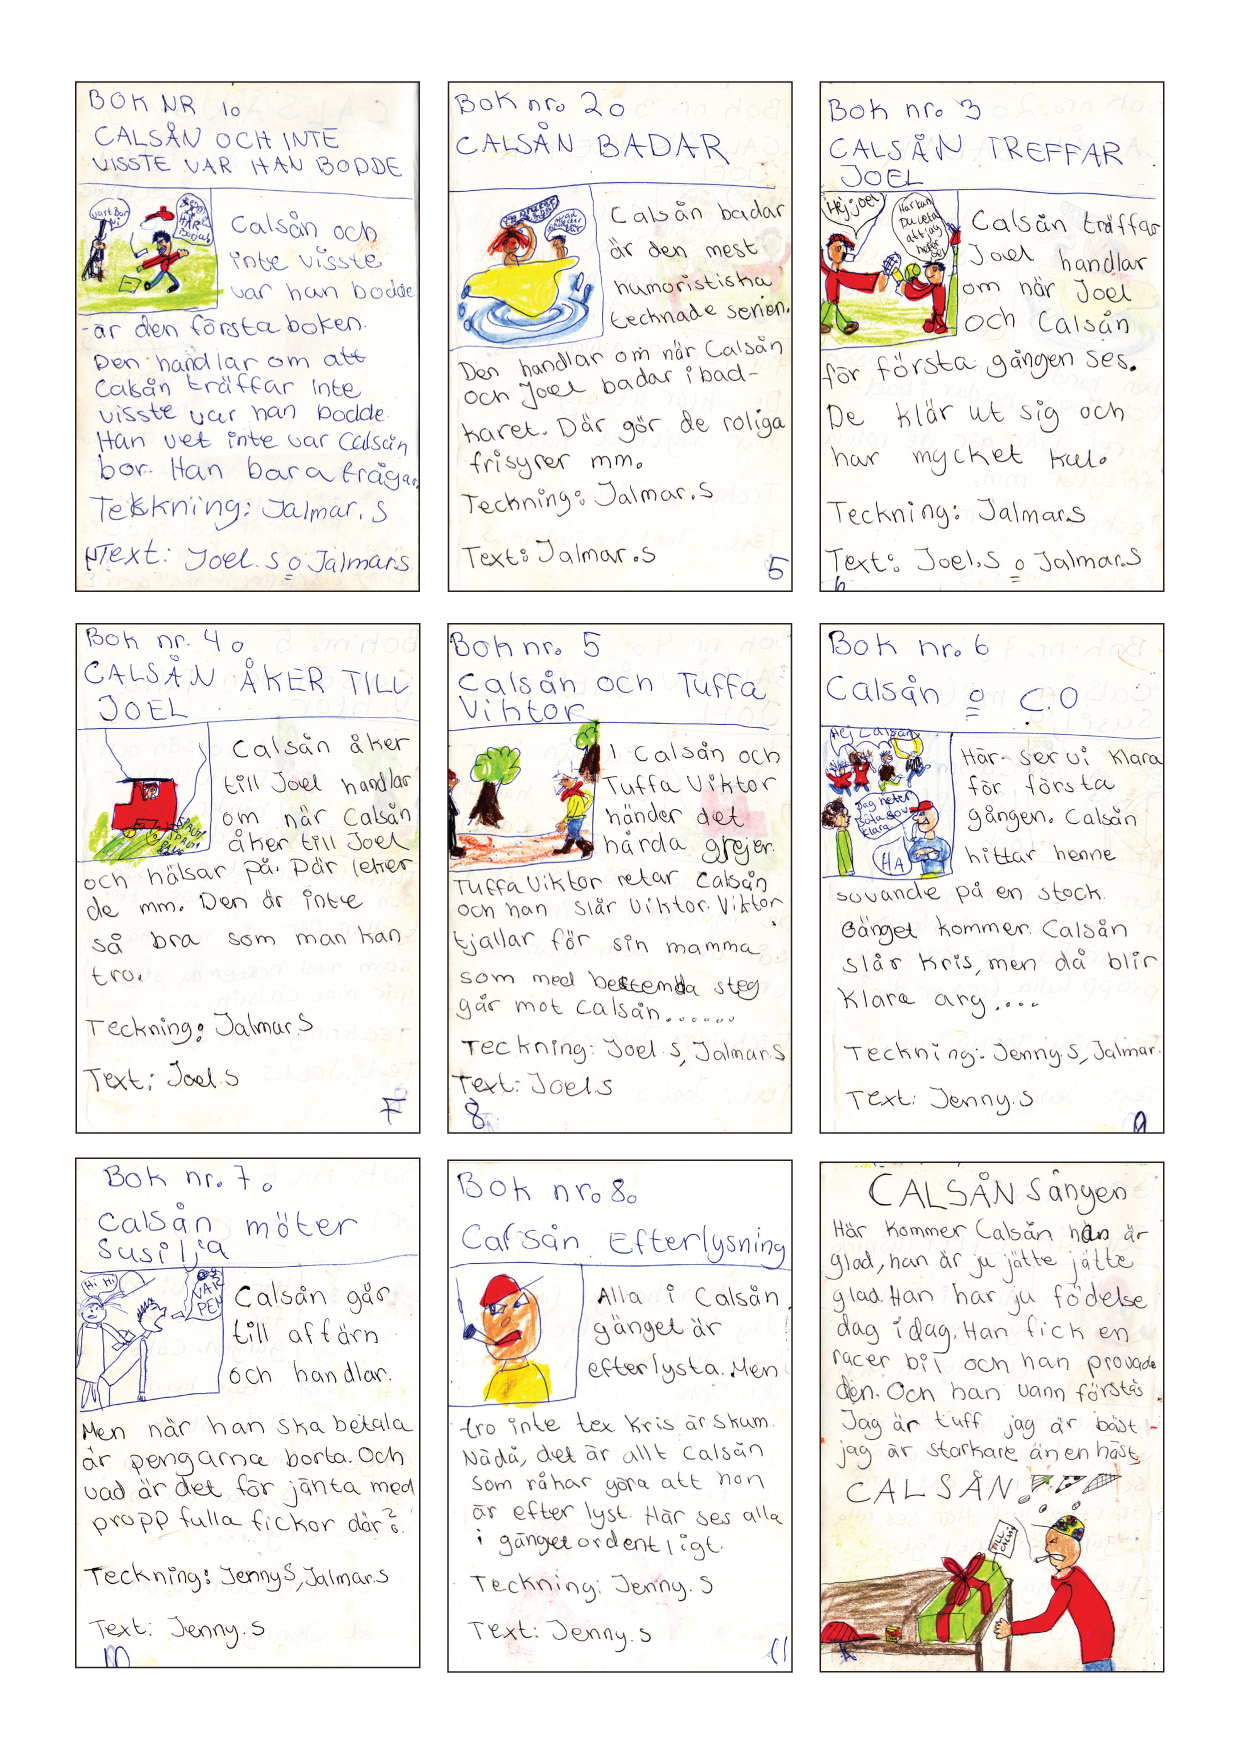 BOK NR 1o
CALSÅN OCH INTE
VISSTE VAR HAN BODDE
vart Bor
Ni
Calsån och
inte visste
var han bodde
är den första boken.
Den handlar om att
Calsån träffar Inte
visste var han bodde.
Han vet inte var Calsån
bor. Han bara frågar.
Teckning: Jalmar.S
Text: Joel.S o Jalmar.S
Bok nr. 2o
CALSÅN BADAR
Calsån badar
är den mest
humoristiska
tecknade serien.
Den handlar om när Calsån
och Joel badar i bad-
karet. Där gör de roliga
frisyrer mm.
Teckning: Jalmar.S
Text: Jalmar.S
5
Bok nr. 3
CALSÅN TREFFAR
JOEL
Hej joel
Här kan
Du veta
att jag
heter
Joel
Calsån träffar
Joel handlar
om när Joel
och Calsån
för första gången ses.
De klär ut sig och
har mycket kul.
Teckning: Jalmar.S
Text: Joel.S o Jalmar.S
6
Bok nr. 4o
CALSÅN ÅKER TILL
JOEL
Calsån åker
till Joel handlar
om när Calsån
åker till Joel
och hälsar på. Där leker
de mm. Den är inte
så bra som man kan
tro.
Teckning: Jalmar.S
Text: Joel.S
7
Bok nr. 5
Calsån och Tuffa
Viktor
I Calsån och
Tuffa Viktor
händer det
hårda grejer.
Tuffa Viktor retar Calsån
och han slår Viktor. Viktor
tjallar för sin mamma
som med bestemda steg
går mot Calsån......
Teckning: Joel.S, Jalmar.S
Text: Joel.S
8
Bok nr. 6
Calsån o C.O
Hej Calsån
Jag heter
Klara
HA
Här ser vi Klara
för första
gången. Calsån
hittar henne
sovande på en stock.
Gänget kommer. Calsån
slår Kris, men då blir
Klara arg....
Teckning: Jenny.S, Jalmar.
Text: Jenny.S
9
Bok nr. 7o
Calsån möter
Susilja
Hi Hi
Calsån går
till affärn
och handlar.
Men när han ska betala
är pengarna borta. Och
vad är det för jänta med
propp fulla fickor där?
Teckning: Jenny S, Jalmar.S
Text: Jenny.S
10
Bok nr. 8o
Calsån Efterlysning
Alla i Calsån
gänget är
efterlysta. Men
tro inte tex Kris är skum.
Nädå, det är allt Calsån
som råhar göra att hon
är efter lyst. Här ses alla
i gänget ordentligt.
Teckning: Jenny.S
Text: Jenny.S
11
CALSÅN Sången
Här kommer Calsån han är
glad, han är ju jätte jätte
glad. Han har ju födelse
dag idag. Han fick en
racer bil och han provade
den. Och han vann förstås
Jag är tuff jag är bäst -
jag är starkare än en häst
CALSÅN!
TILL
CALSÅN